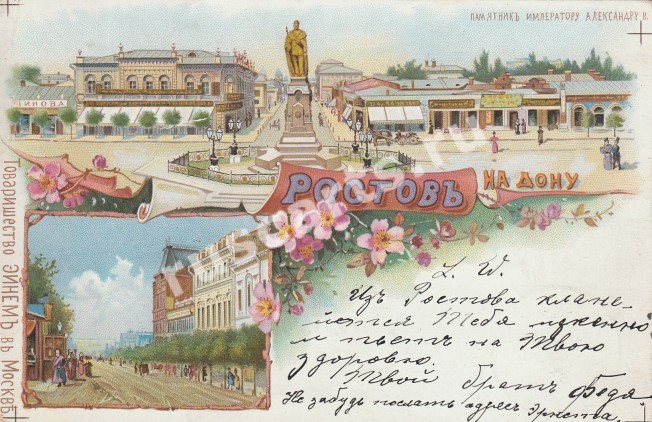 ПАМЯТНИКЪ ИМПЕРАТОРУ АЛЕКСАНДРУ II.
ИНОВА
РОСТОВЪ НА ДОНУ
Товарищество ЭЙНЕМЪ въ Москвѣ
L. W.
Изъ Ростова клане-
ется Тебѣ
и пьетъ на Твою
здоровью.
Твой братъ Федя
Не забудь послать адресъ Эрнста.
rusmarka.ru